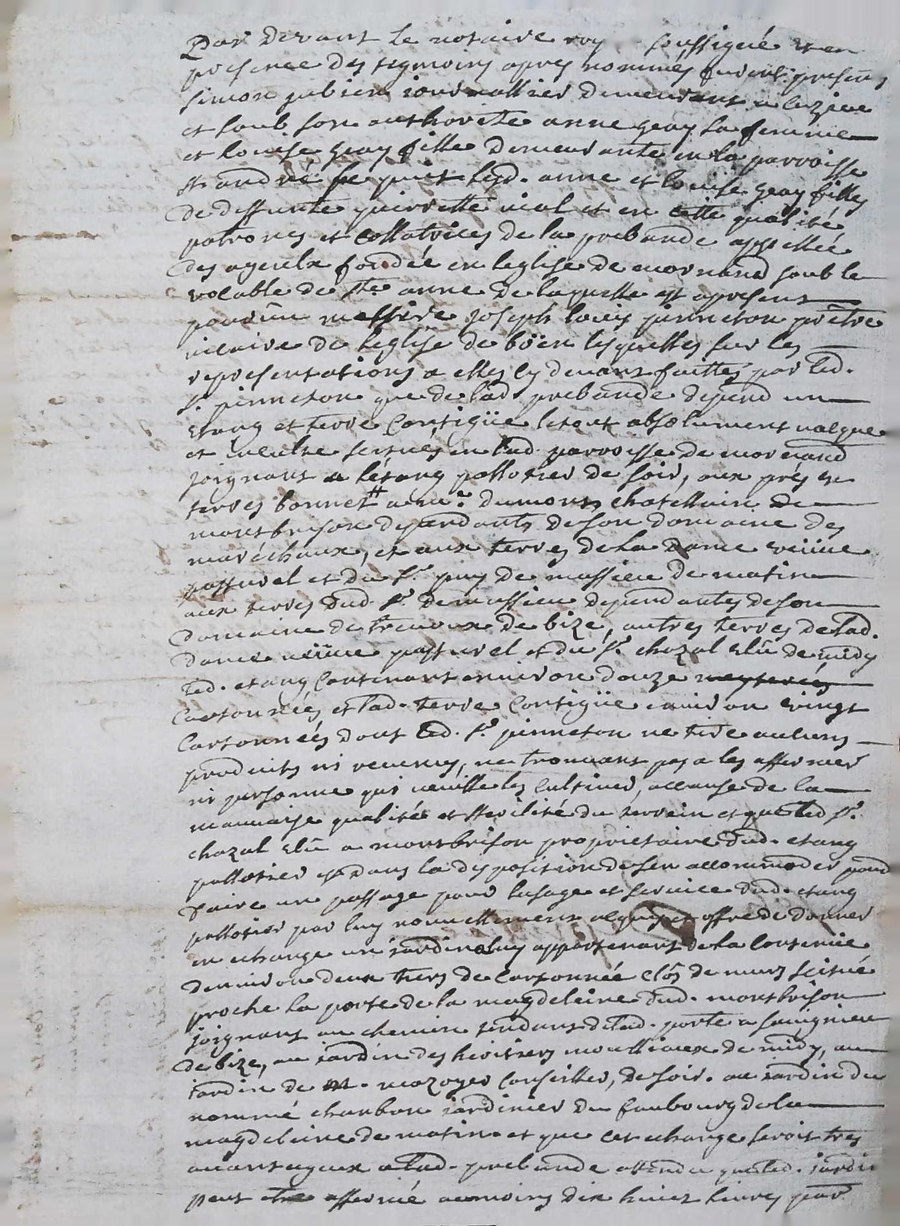 Par devant le notaire roy soussigné et en
presence des tesmoins apres nommés furent presens
simon jubien journallier demeurant a
et soub son authorité anne geay sa femme
et louise geay fille demeurante en la parroisse
st andré le puit lesd. anne et louise geay filles
de deffunte pierrette vial et en cette qualité
patrones et collatrices de la prebande appellée
des fondée en leglise de mornand soub le
vocable de ste anne de laquelle est apresent
pourvû messire joseph pinneton prêtre
vicaire de leglise de boën lesquelles sur les
representations a elles cy devant faittes par led.
sr. pinneton que de lad. prebande depend un
etang et terre contigüe le tout absolument vaque
et inculte scitués en lad. parroisse de mornand
joignant a létang pallotier de soir, aux prés et
terres bonnet a mr. dumont chatellain de
montbrison dependants de son domaine des
marechaux, et aux terres de la dame veüve
pasturel et du sr. puy de mussieu de matin
aux terres dud. sr. de mussieu dependantes de son
domaine de de bize, autres terres de lad.
dame veüve pasturel et du sr. chazal elû de midy
led. etang contenant environ douze meyterées
cartonnées et lad. terre contigüe environ vingt
cartonnées dont led. sr. pinneton ne tire aucuns
produits ni revenus, ne trouvant pas a les affermer
ni personne qui veuille les cultiver, acause de la
mauvaise qualité et sterilité du terrein et que led sr.
chazal elû a montbrison proprietaire dud. etang
pallotier est dans la disposition de sen accommoder pour
faire un passage pour lusage et service dud. etang
pallotier par luy nouvellement acquis et offre de donner
en echange un jardin a luy appartenant de la contenüe
denviron deux tiers de cartonnée clos de murs scitué
proche la porte de la magdeleine dud. montbrison
joignant au chemin tendant de lad. porte a savigneu
de bize, au jardin des heritiers moulliaux de midy, au
jardin de m. mazoyer conseiller, de soir. au jardin du
nommé charbon jardinier du faubourg de la
magdeleine de matin et que cet echange seroit tres
avantageux a lad. prebande attendu que led. jardin
peut etre affermé aumoins dix huit livres par